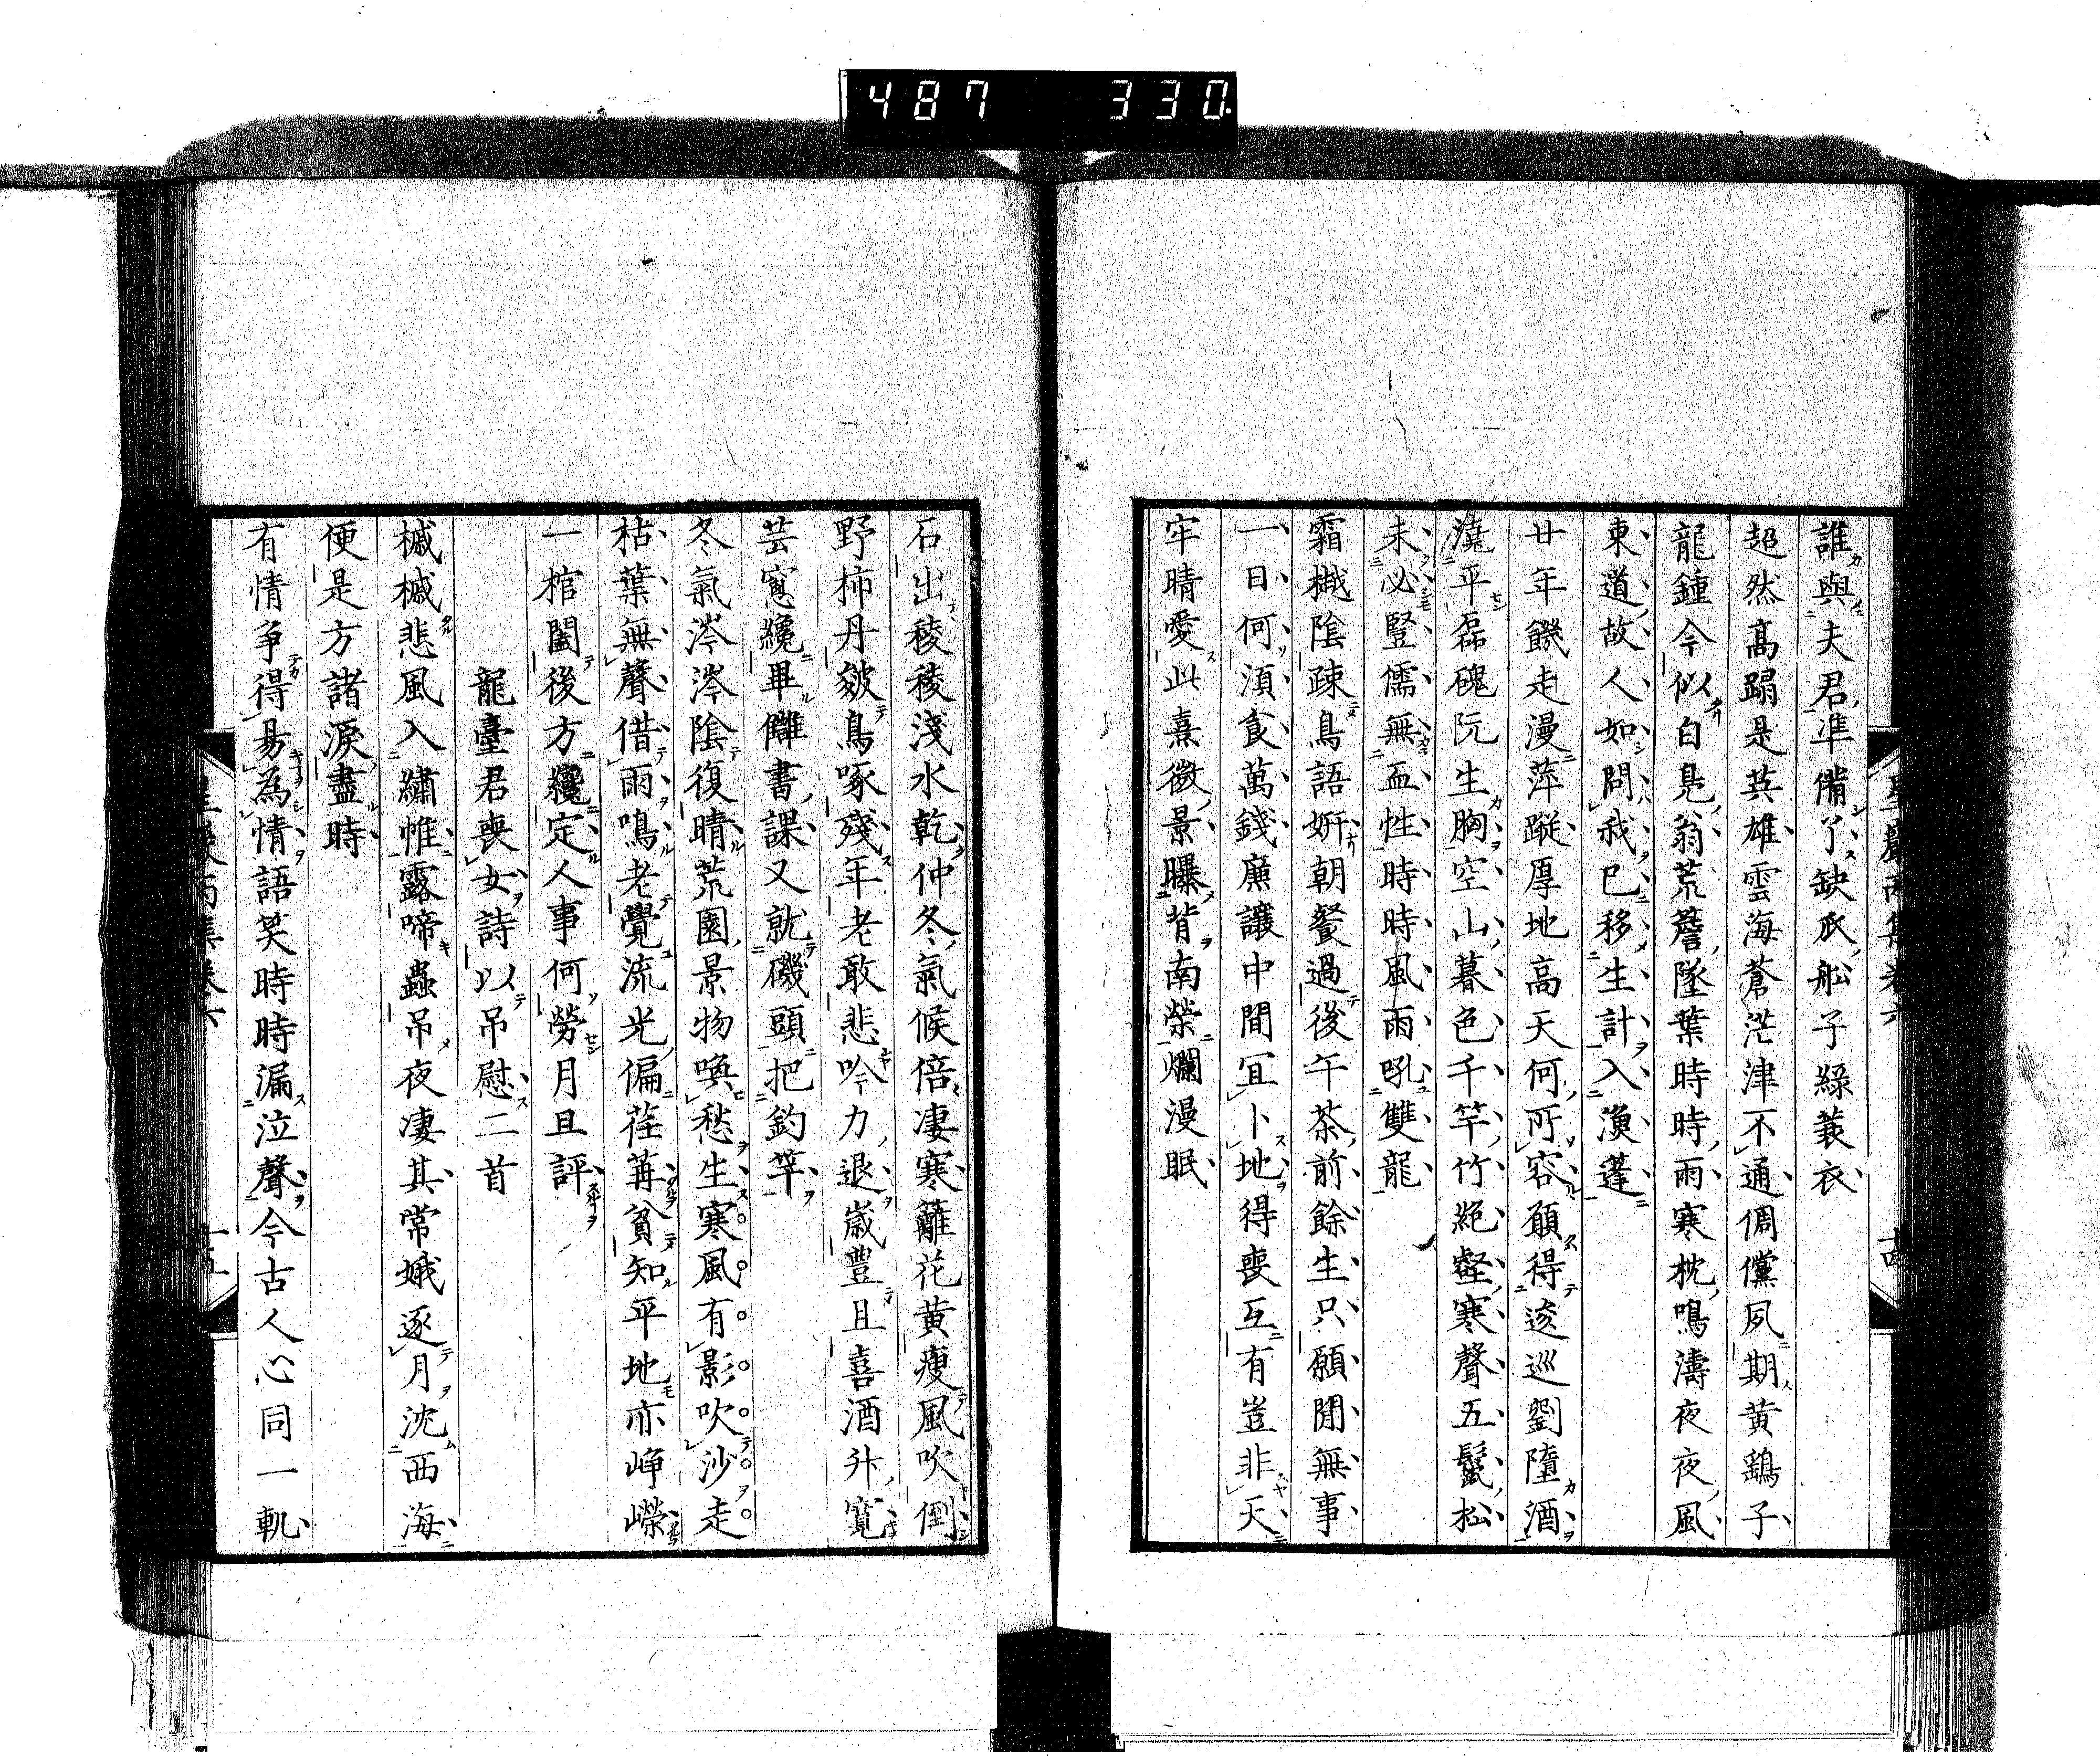 487 330
誰與夫君準備了缺瓜舩子綠蓑衣
超然高蹋是英雄雲海蒼茫津不通倜儻夙期黃鷂子
龍鍾今似白鳧翁荒蘆墜葉時時雨寒枕鳴濤夜夜風
東道故人如問我已移生計入漁蓬
廿年饑走漫萍蹤厚地高天何所容願得逡巡劉墮酒
澆平磊磈阮生胸空山暮色千竿竹絕壑寒聲五鬣松
未必豎儒無血性時時風雨吼雙龍
霜樾陰疎鳥語妍朝餐過後午茶前餘生只願閒無事
一日何須食萬錢廉讓中間宜卜地得喪互有豈非天
牢晴愛此熹微景曝背南榮爛漫眠
星巖丙集卷六 十四
石出稜稜淺水乾仲冬氣候倍凄寒籬花黃瘦風吹倒
野柿丹皴鳥啄殘年老敢悲吟力退歲豐且喜酒升寬
芸窻纔畢讎書課又就磯頭把釣竿
冬氣涔涔陰復晴荒園景物喚愁生寒風有影吹沙走
枯葉無聲借雨鳴老覺流光偏荏苒貧知平地亦崢嶸
一棺闔後方纔定人事何勞月且評
龍臺君喪女詩以吊慰二首
槭槭悲風入繡帷露啼蟲吊夜凄其常娥逐月沈西海
便是方諸淚盡時
有情爭得易為情語笑時時漏泣聲今古人心同一軌
星巖丙集卷六 十五